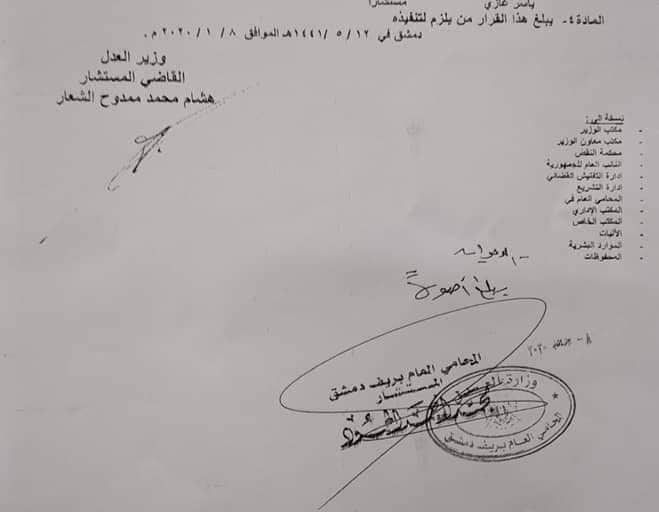 ياسر غازي مستشارا
المادة ٤- يبلغ هذا القرار من يلزم لتنفيذه
دمشق في ١٢ / ٥ / ١٤٤١هـ الموافق ٨ / ١ / ٢٠٢٠ م.
وزير العدل
القاضي المستشار
هشام محمد ممدوح الشعار
نسخة الى:
- مكتب الوزير
- مكتب معاون الوزير
- محكمة النقض
- النائب العام للجمهورية
- ادارة التفتيش القضائي
- ادارة التشريع
- المحامي العام في
- المكتب الإداري
- المكتب الخاص
- الآليات
- الموارد البشرية
- المحفوظات
يبلغ أصولاً
٢٠٢٠
المحامي العام بريف دمشق
المستشار
وزارة العدل
المحامي العام بريف دمشق